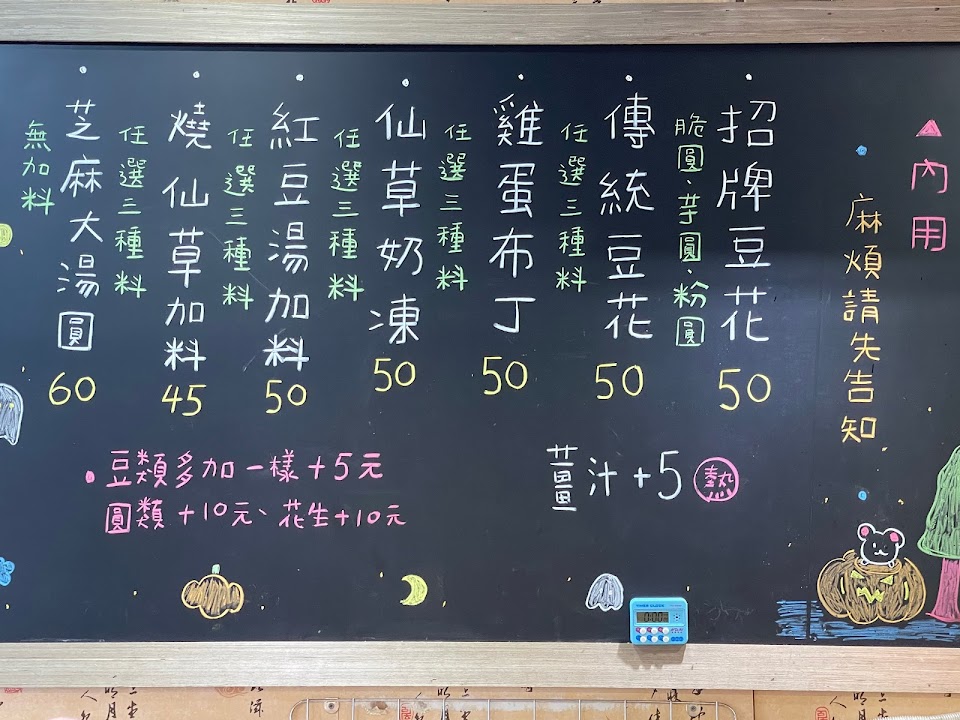 ▲內用
麻煩請先告知
招牌豆花
50
脆圓、芋圓、粉圓
傳統豆花
50
任選三種料
雞蛋布丁
50
任選三種料
仙草奶凍
50
任選三種料
紅豆湯加料
50
任選三種料
燒仙草加料
45
任選三種料
芝麻大湯圓
60
無加料
豆類多加一樣+5元
圓類+10元、花生+10元
薑汁+5 熱